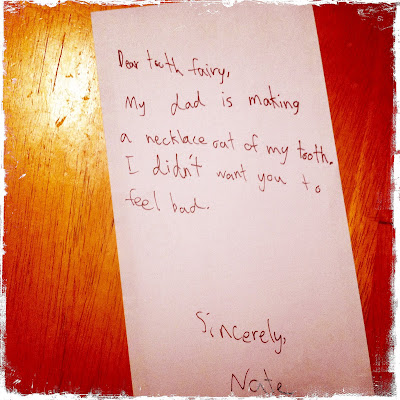 Dear tooth fairy,
My dad is making
a necklace out of my tooth.
I didn't want you to
feel bad.
Sincerely,
Nate